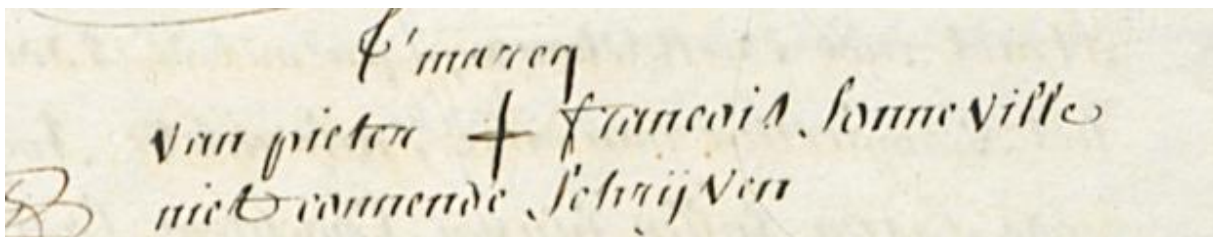 t'marcq
van pieter + francois Sonneville
niet connende Schrijven